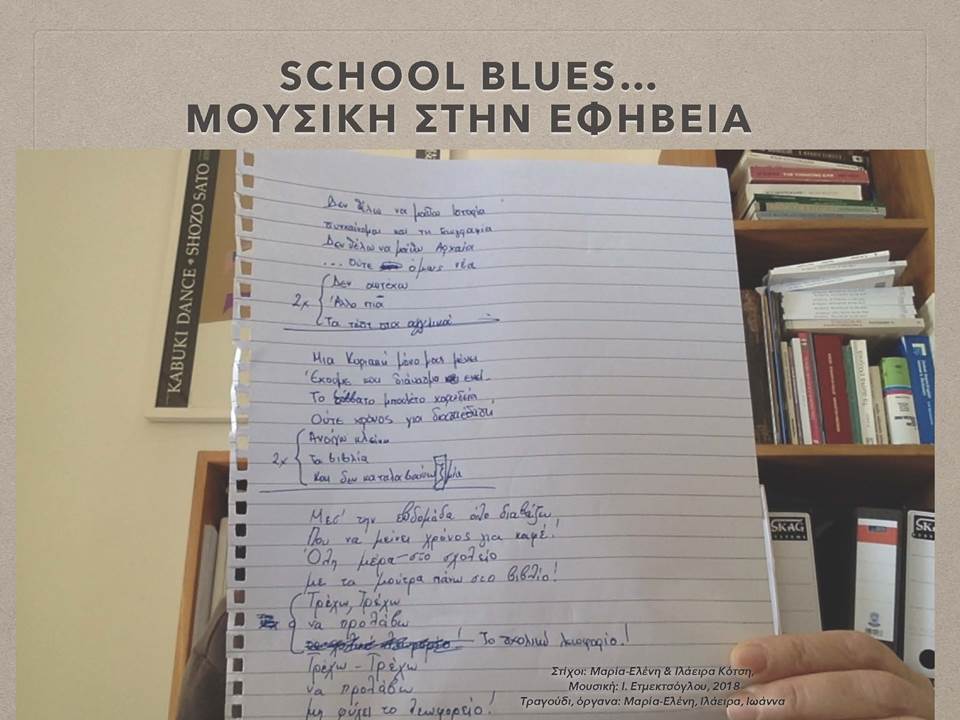 SCHOOL BLUES...
ΜΟΥΣΙΚΗ ΣΤΗΝ ΕΦΗΒΕΙΑ
KABUKI DANCE • SHOZO SATO
Δεν θέλω να μάθω Ιστορία
και τη Γεωγραφία
Δεν θέλω να μάθω Αρχαία
... Ούτε όμως νέα
2x
Δεν αντέχω
Άλλο πιά
Τα τέστ στα αγγλικά
Μια Κυριακή μόνο μας μένει
Έχουμε και διάβασμα
Το Σάββατο μπαλέτο χορωδία
Ούτε χρόνος για διασκέδαση
2x
Ανοίγω κλείνω
Τα βιβλία
και δεν καταλαβαίνω μία
Μεσ' την εβδομάδα όλο διαβάζω
Που να μείνει χρόνος για καφέ!
Όλη μέρα στο σχολείο
με τα μούτρα πάνω στο βιβλίο!
Τρέχω, Τρέχω
να προλάβω
Το σχολικό λεωφορείο!
Τρέχω - Τρέχω
να προλάβω
μη φύγει το λεωφορείο!
SKAG
SKAG
Στίχοι: Μαρία-Ελένη & Ιλάειρα Κότση,
Μουσική: Ι. Ετμεκτσόγλου, 2018
Τραγούδι, όργανα: Μαρία-Ελένη, Ιλάειρα, Ιωάννα